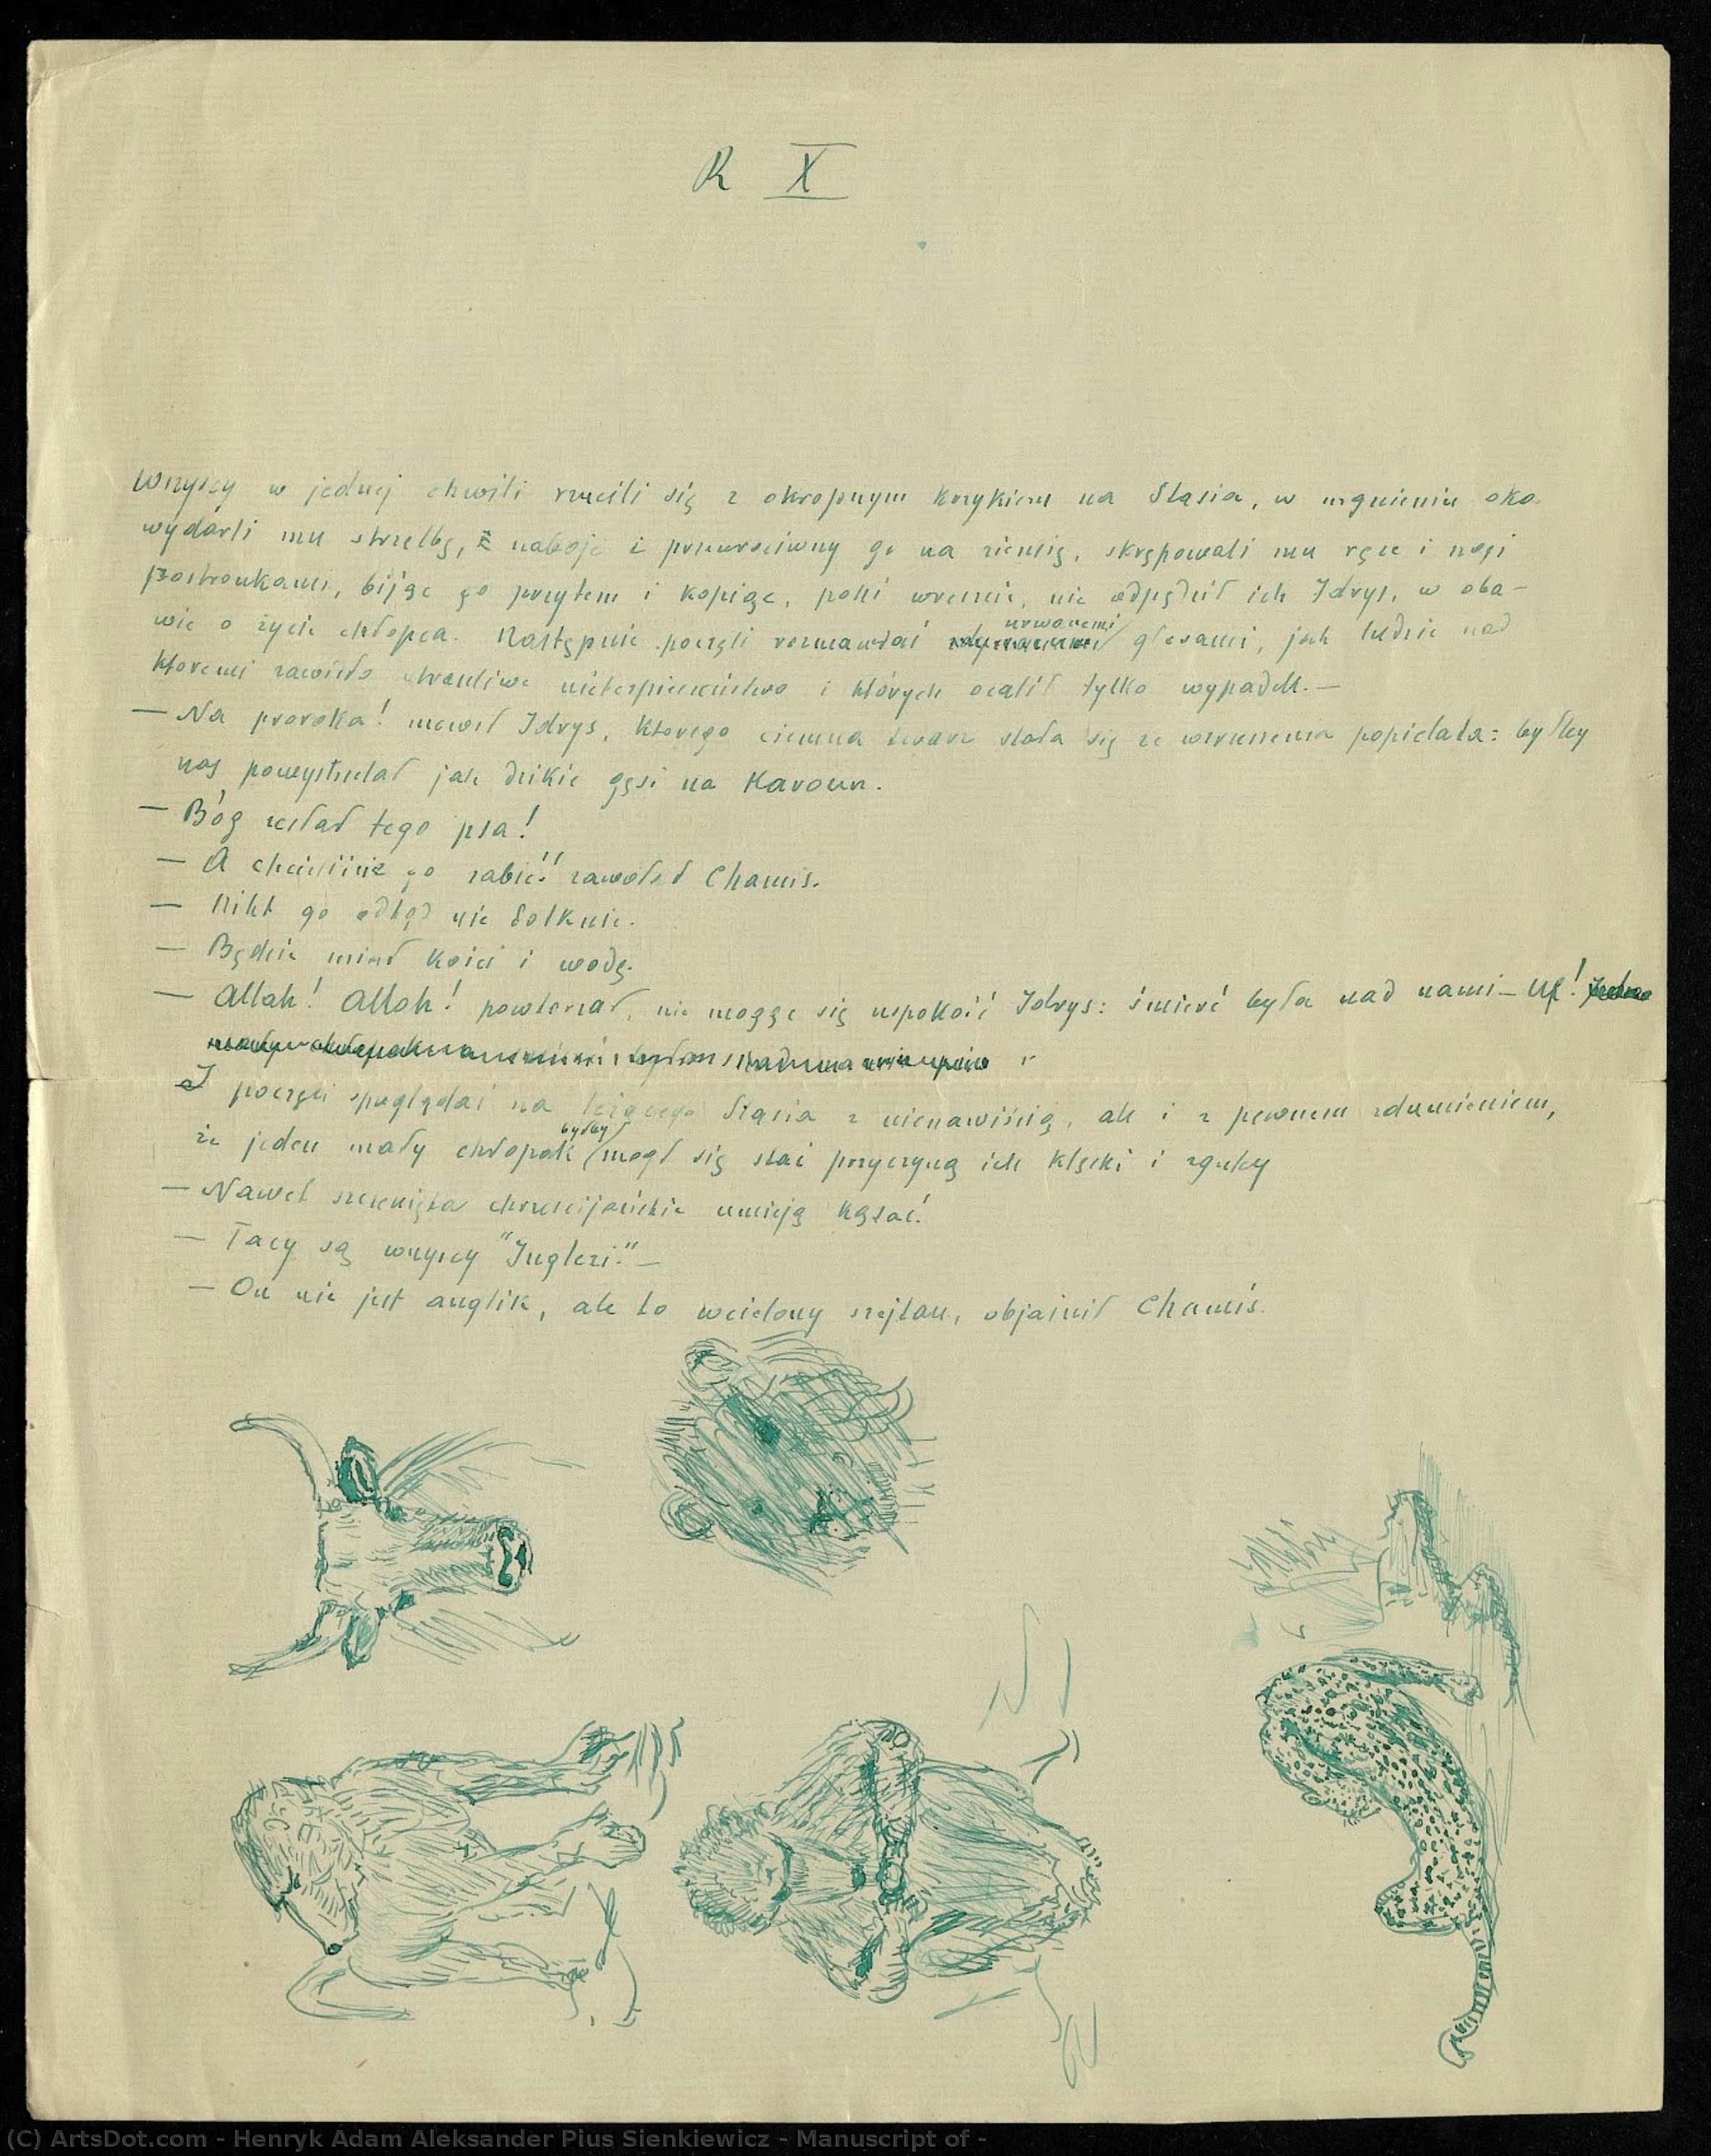 R X
Wszyscy w jednej chwili rzucili się z okropnym krzykiem na Stasia, w mgnieniu oka
wydarli mu strzelbę, naboje i przewróciwszy go na ziemię, skrępowali mu ręce i nogi
postronkami, bijąc go przytem i kopiąc, póki wreszcie, nie odpędził ich Idrys, w oba-
wie o życie chłopca. Następnie poczęli rozmawiać urwanemi głosami, jak ludzie nad
któremi zawisło straszliwe niebezpieczeństwo i których ocalił tylko wypadek. —
— Na proroka! mówił Idrys, którego ciemna twarz stała się ze wzruszenia popielata: byłby
nas powystrzelał jak dzikie gęsi na Karoun.
— Bóg zesłał tego psa!
— A chcieliście go zabić! zawołał Chamis.
— Nikt go odtąd nie dotknie.
— Będzie miał kości i wodę.
— Allah! Allah! powtarzał, nie mogąc się uspokoić Idrys: śmierć była nad nami — Uf!
I poczęli spoglądać na leżącego Stasia z nienawiścią, ale i z pewnem zdumieniem,
że jeden mały chłopak byłby mógł się stać przyczyną ich klęski i zguby
— Nawet szczenięta chrześcijańskie umieją kąsać!
— Tacy są wszyscy "Inglezi." —
— On nie jest anglik, ale to wcielony szejtan, objaśnił Chamis.
(C) ArtsDot.com - Henryk Adam Aleksander Pius Sienkiewicz - Manuscript of -